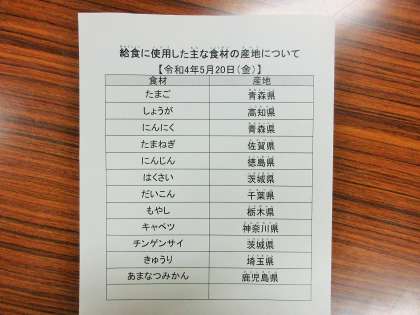 給食に使用した主な食材の産地について
【令和4年5月20日（金）】
食材 産地
たまご 青森県
しょうが 高知県
にんにく 青森県
たまねぎ 佐賀県
にんじん 徳島県
はくさい 茨城県
だいこん 千葉県
もやし 栃木県
キャベツ 神奈川県
チンゲンサイ 茨城県
きゅうり 埼玉県
あまなつみかん 鹿児島県